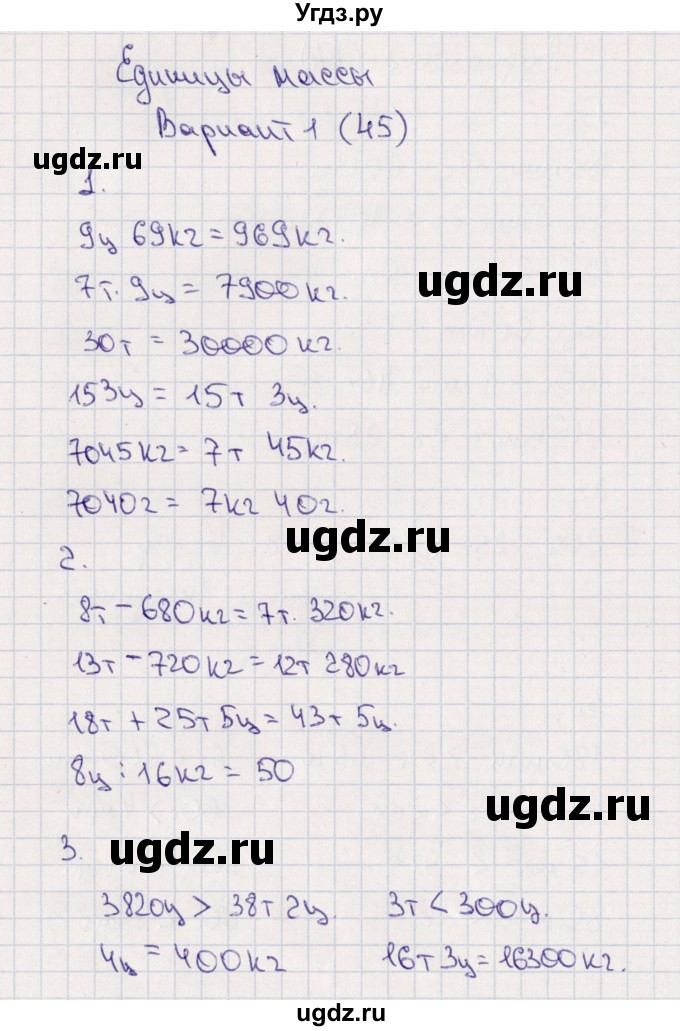 Угдз.ру
Единицы массы
Вариант 1 (45)
ugdz.ru
1.
9ц 69кг = 969кг.
7т. 9ц = 7900кг.
ugdz.ru
30т = 30000кг.
153ц = 15т 3ц.
7045кг = 7т 45кг.
7040г = 7кг 40г.
ugdz.ru
2.
8т - 680кг = 7т. 320кг.
13т - 720кг = 12т 280кг
18т + 25т 5ц = 43т 5ц.
8ц : 16кг = 50
ugdz.ru
3.
ugdz.ru
3820ц > 38т 2ц. 3т < 300ц.
4ц = 400кг 16т 3ц = 16300кг.
ugdz.ru